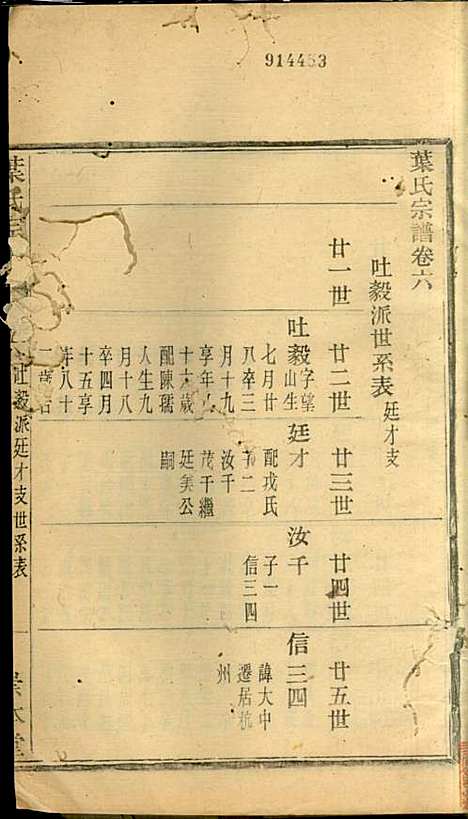 914453
葉氏宗譜卷六
吐毅派世系表 廷才支
廿一世
廿二世
廿三世
廿四世
廿五世
吐毅 字望
山生
七月廿
八卒三
月十九
享年
十六歲
配陳孺
人生九
月十八
卒四月
十五享
年八十
二歲
廷才
配戎氏
子二
汝千
茂千繼
廷美公
嗣
汝千
子一
信三四
信三四
諱大中
遷居杭
州
葉氏宗
吐毅派廷才支世系表